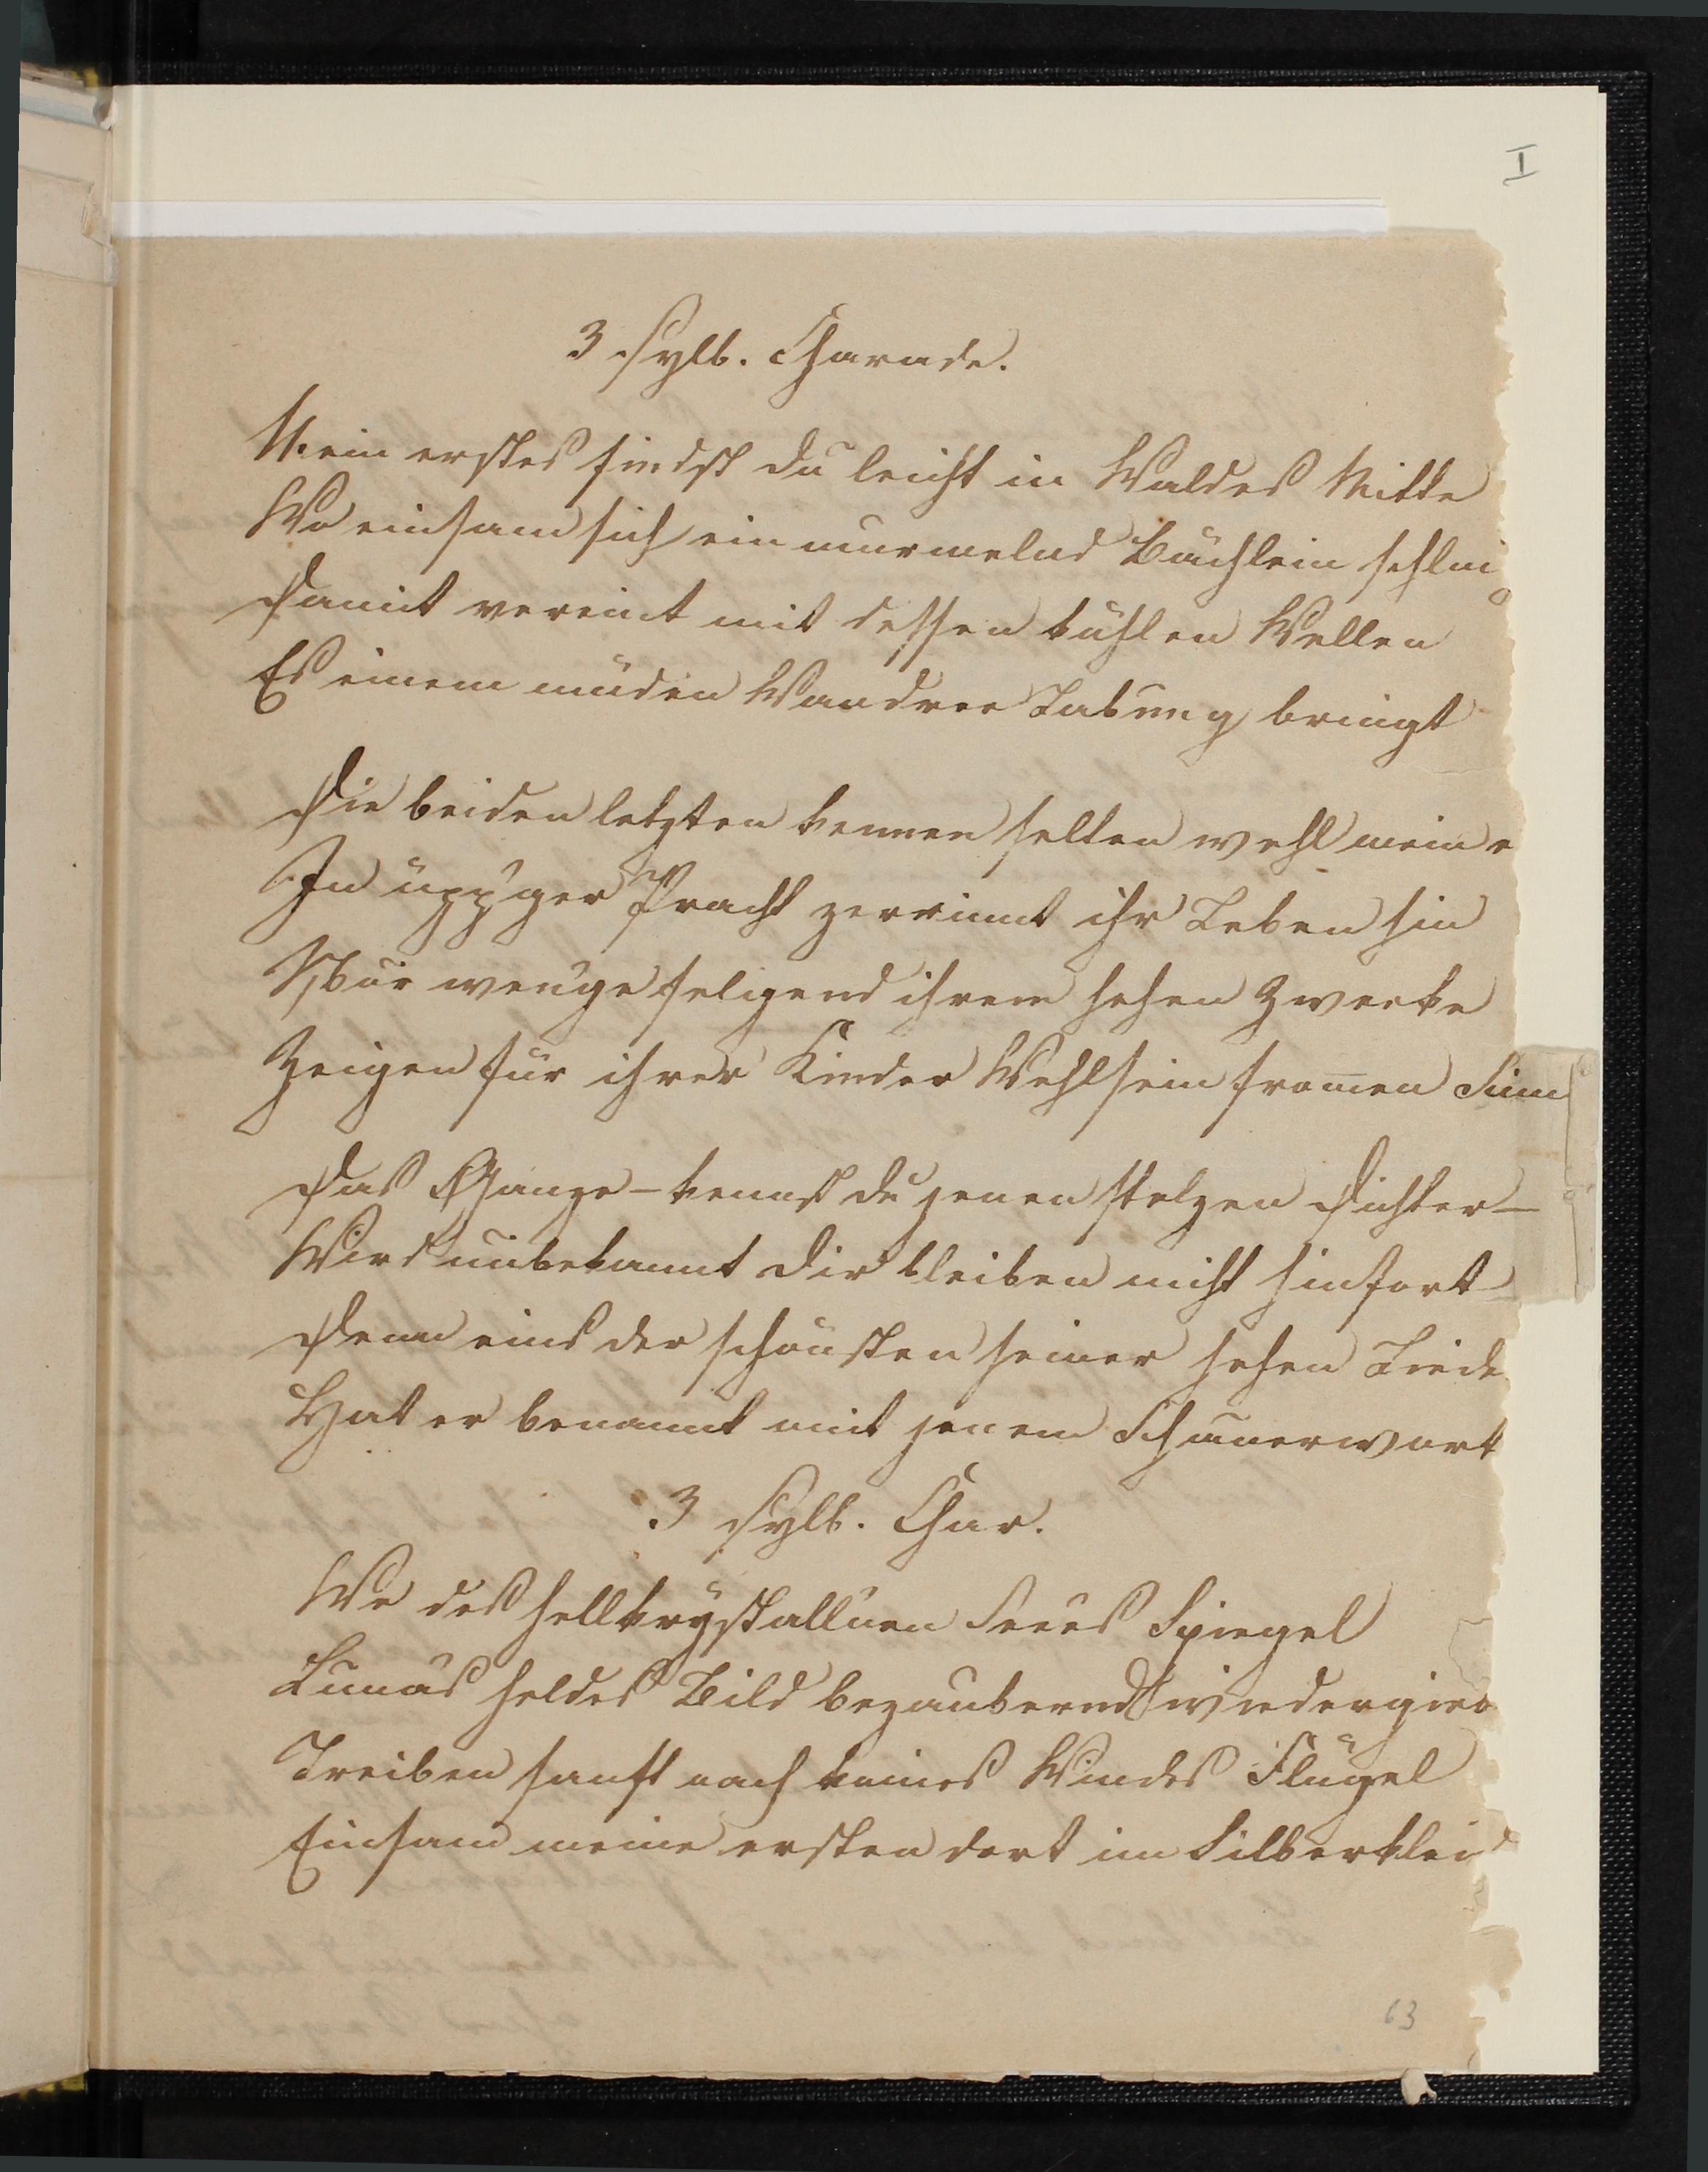 I
3 Sylb. Charade.
Mein erstes findst du leicht in Waldes Mitte
Wo einsam sich ein murmelnd Bächlein schlin
Damit vereint mit dessen kühlen Wellen
Es einem müden Wandrer Labung bringt
Die beiden letzten kennen selten wohl meine
In üpp'ger Pracht zerrinnt ihr Leben hin
Nur wen'ge folgend ihrem hohen Zwecke
Zeigen für ihrer Kinder Wohlsein from̅en Sinn
Das Ganze – kennst du jenen stolzen Dichter –
Wird unbekannt dir bleiben nicht hinfort
Denn eins der schönsten seiner hohen Liede
Hat er benannt mit jenem Schauerwort
3 Sylb. Char.
Wo des hellkrystall'nen See's Spiegel
Luna's holdes Bild bezaubernd wiedergieb
Treiben sanft nach keines Windes Flügel
Einsam meine ersten dort im Silberkleid
63